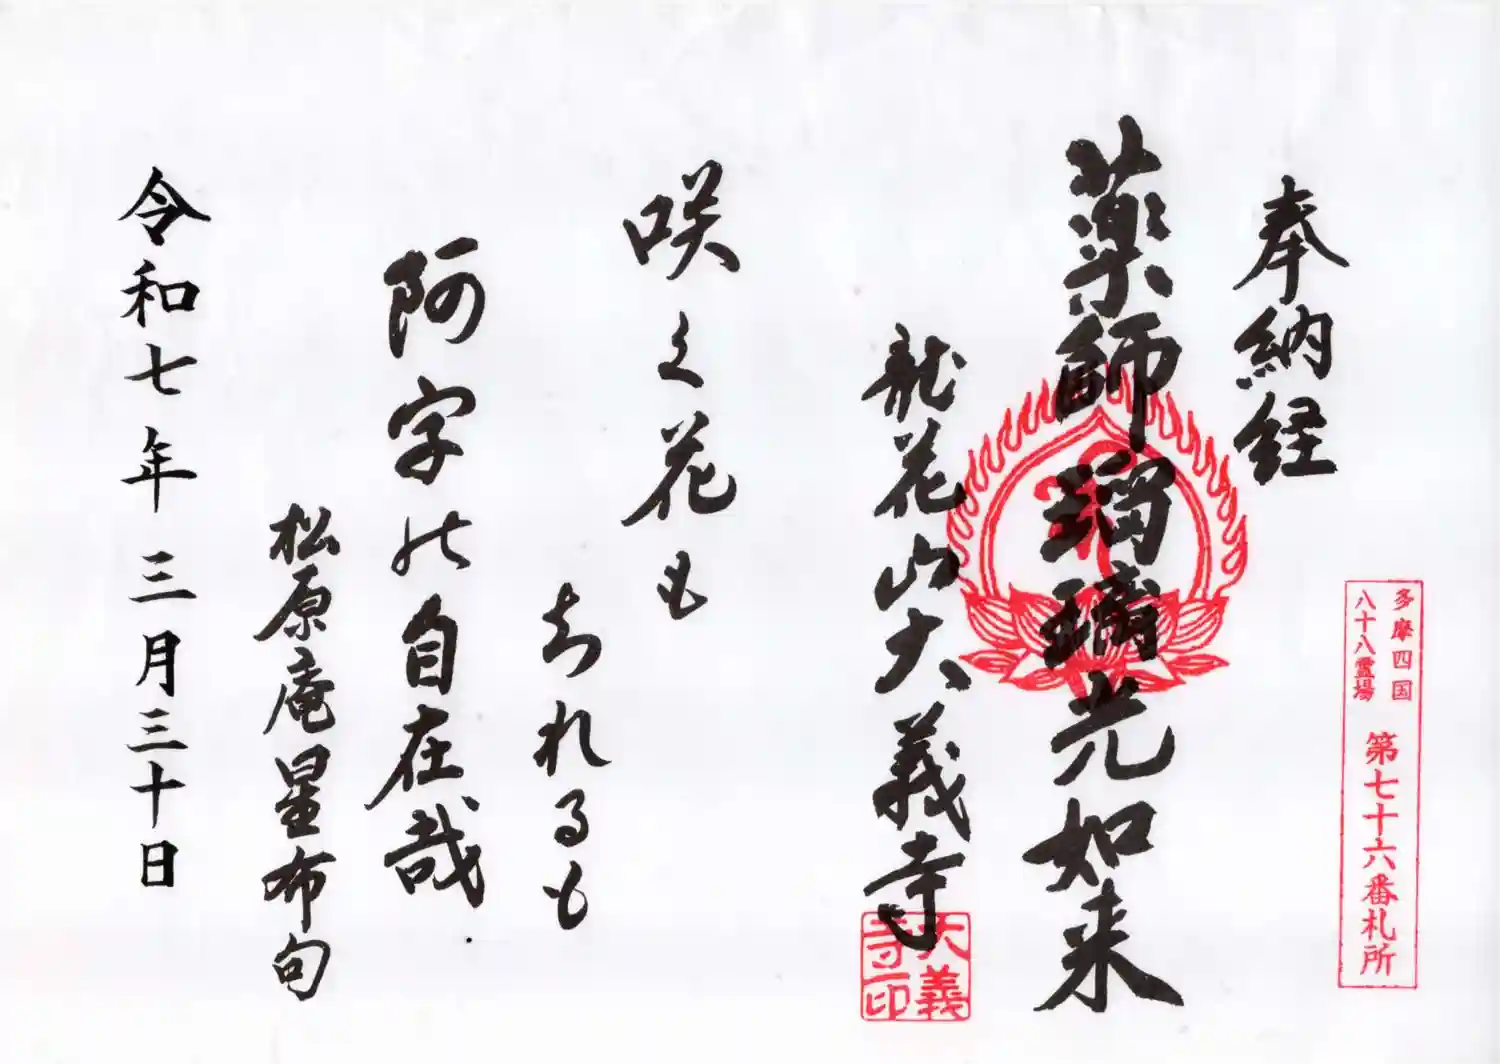 多摩四国
八十八霊場
第七十六番札所
奉納経
薬師瑠璃光如来
龍花山大義寺
大義
寺印
咲く花も
ちれるも
阿字の自在哉
松原庵星布句
令和七年三月三十日